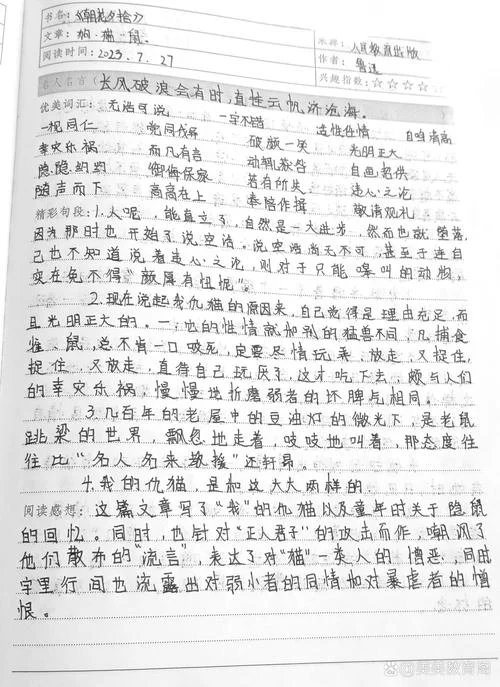 书名：《朝花夕拾》
文章：狗·猫·鼠.
来源：人民教育出版
阅读时间：2023.7.27
作者：鲁迅
兴趣指数：☆☆☆☆
名人名言（长风破浪会有时，直挂云帆济沧海。）
优美词汇：无浩可说 一字不错
一视同仁 党同伐异 破颜一笑 适性任情 自鸣清高
幸灾乐祸 而凡有言 动辄获咎 光明正大
隐隐约约 御侮保家 若有所失 自画招供
随声而下 高高在上 奉陪作揖 违心之论
敬请观礼
精彩句段：1.人呢，能直立了，自然是一大进步，然而也就堕落，
因为那时也开始了说空话。说空话尚无不可，甚至于连自
己也不知道说着违心之论，则对于只能嗥叫的动物，
实在免不得“颜厚有忸怩”。
2.现在说起我仇猫的原因来，自己觉得是理由充足，而
且光明正大的。一：它的性情就和别的猛兽不同，凡捕食
雀、鼠，总不肯一口咬死，定要尽情玩弄，放走，又捉住，
捉住，又放走，直待自己玩厌了，这才吃下去，颇与人们
的幸灾乐祸，慢慢地折磨弱者的坏脾与相同。
3.几百年的老屋中的豆油灯的微光下，是老鼠
跳梁的世界，飘忽地走着，吱吱地叫着，那态度往
往比“名人名来教授”还轩昂。
4.我的仇猫，是和这大大两样的
阅读感想：这篇文章写了“我”的仇猫以及童年时关于隐鼠
的回忆。同时，也针对“正人君子”的攻击而作，嘲讽了
他们散布的“流言”，表达了对“猫”一类人的憎恶，同时
字里行间也流露出对弱小者的同情和对暴虐者的憎
恨。
美美教育阁